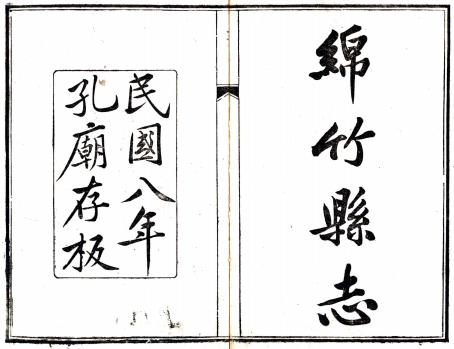 綿竹縣志
民國八年
孔廟存板